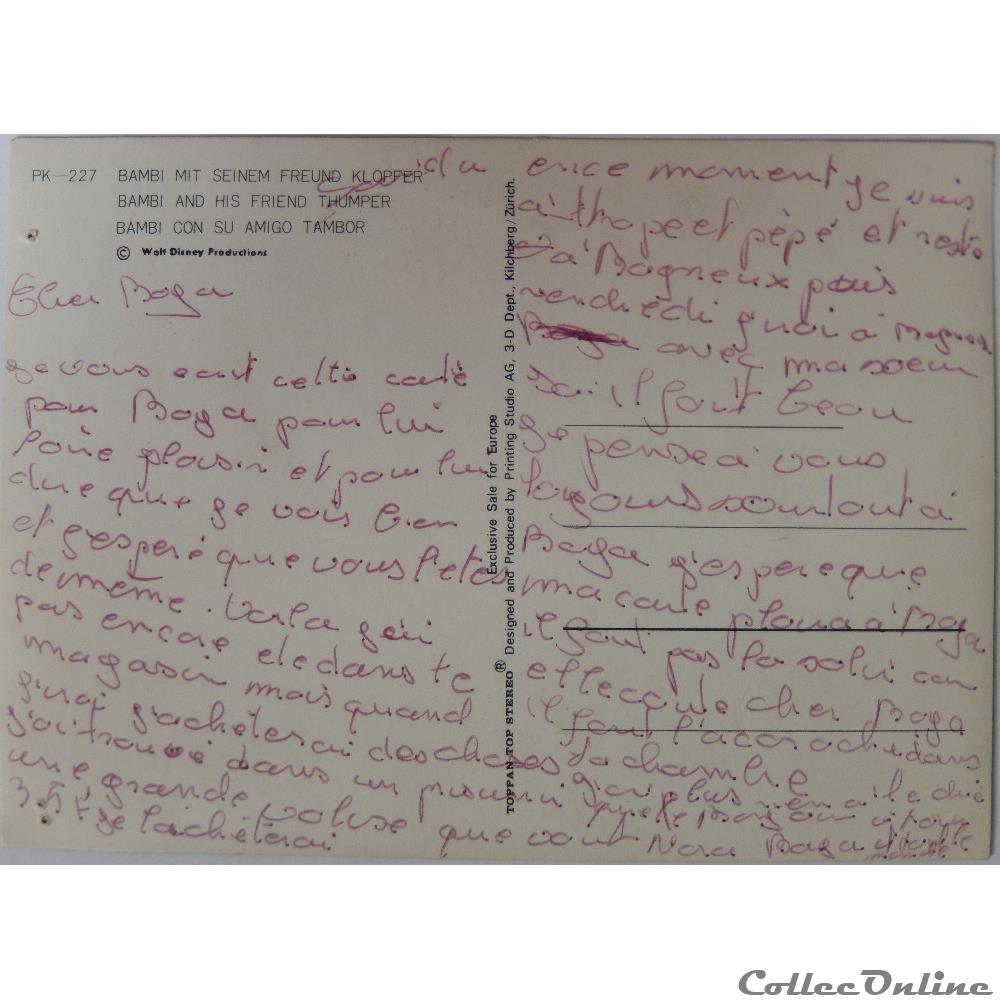 PK-227 BAMBI MIT SEINEM FREUND KLOPFER
BAMBI AND HIS FRIEND THUMPER
BAMBI CON SU AMIGO TAMBOR
© Walt Disney Productions
Cher Baga
je vous ecrit cette carte
pour Baga pour lui
faire plaisir et pour lui
dire que je vais bien
et j'esperé que vous l'etes
de même. Voila j'ai
pas encore ete dans te
magasin mais quand
j'irai j'acheterai des choses
j'ai trouvé dans un
une grande valise que vont
35 F je l'achèterai
Exclusive Sale for Europe
TOPPAN TOP STEREO® Designed and Produced by Printing Studio AG, 3-D Dept., Kilchberg/Zürich.
en ce moment je suis
à et pépé et reste
à Bagneux puis
vendredi j'irai à
avec ma soeur
il fait beau
je pense a vous
toujours surtout a
Baga j'espere que
ma carte plaira a Baga
il faut pas la
cette carte cher Baga
il faut l'acrocher dans
ta chambre
j'ai plus rien a te dire
Nora Baga
CollecOnline